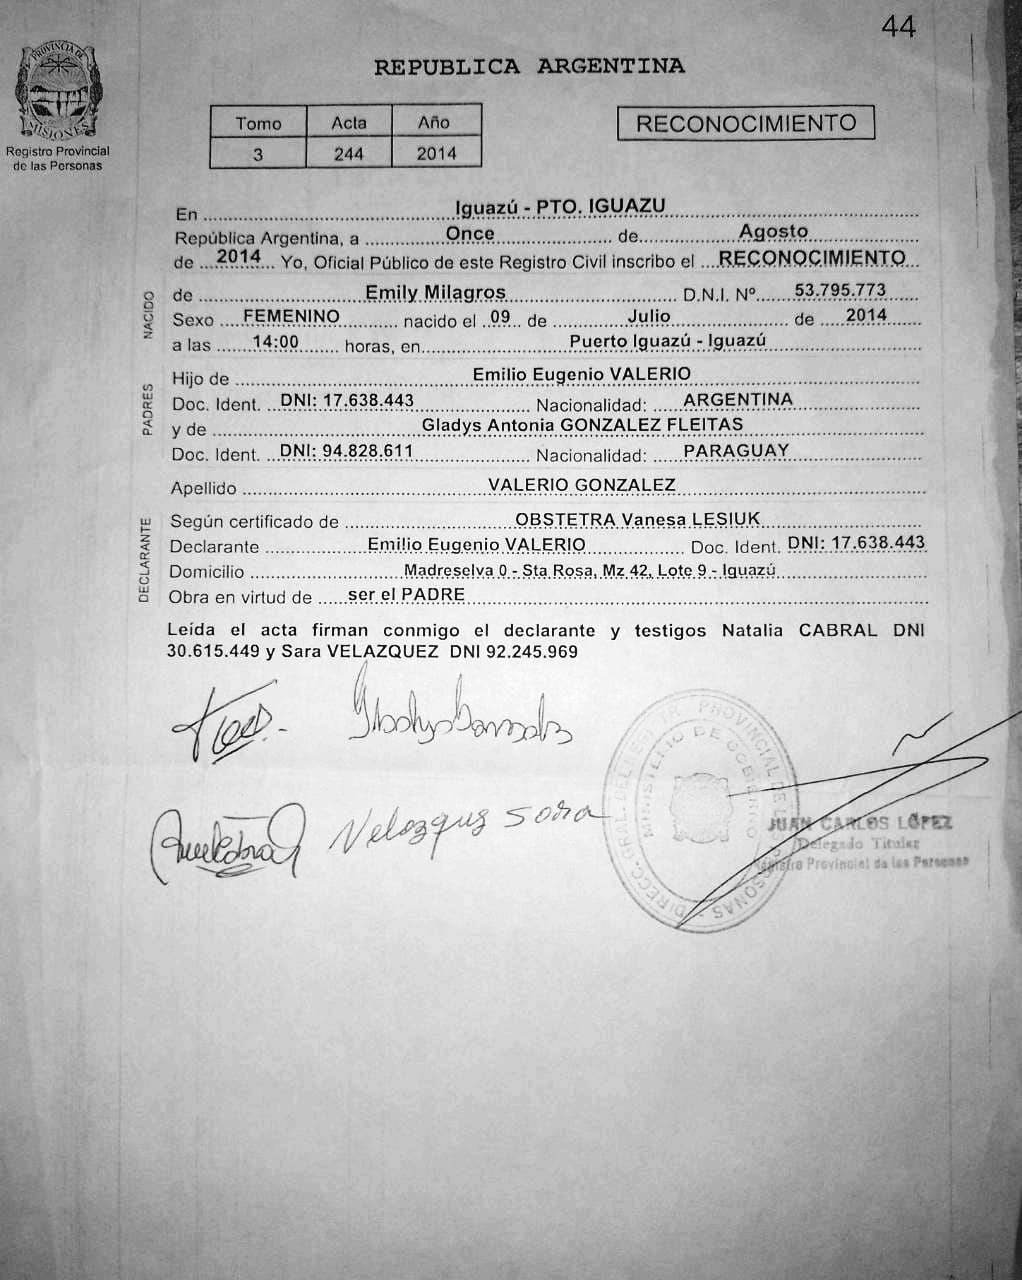 44
PROVINCIA DE
MISIONES
Registro Provincial
de las Personas
REPUBLICA ARGENTINA
Tomo Acta Año
3 244 2014
RECONOCIMIENTO
En Iguazú - PTO. IGUAZU
República Argentina, a Once de Agosto
de 2014 Yo, Oficial Público de este Registro Civil inscribo el RECONOCIMIENTO
NACIDO
de Emily Milagros D.N.I. Nº 53.795.773
Sexo FEMENINO nacido el 09 de Julio de 2014
a las 14:00 horas, en Puerto Iguazú - Iguazú
PADRES
Hijo de Emilio Eugenio VALERIO
Doc. Ident. DNI: 17.638.443 Nacionalidad: ARGENTINA
y de Gladys Antonia GONZALEZ FLEITAS
Doc. Ident. DNI: 94.828.611 Nacionalidad: PARAGUAY
Apellido VALERIO GONZALEZ
DECLARANTE
Según certificado de OBSTETRA Vanesa LESIUK
Declarante Emilio Eugenio VALERIO Doc. Ident. DNI: 17.638.443
Domicilio Madreselva 0 - Sta Rosa, Mz 42, Lote 9 - Iguazú
Obra en virtud de ser el PADRE
Leída el acta firman conmigo el declarante y testigos Natalia CABRAL DNI
30.615.449 y Sara VELAZQUEZ DNI 92.245.969
Gladys Gonzalez
Velazquez Sara
PROVINCIAL DE
MINISTERIO DE GOBIERNO
JUAN CARLOS LÓPEZ
Delegado Titular
Registro Provincial de las Personas